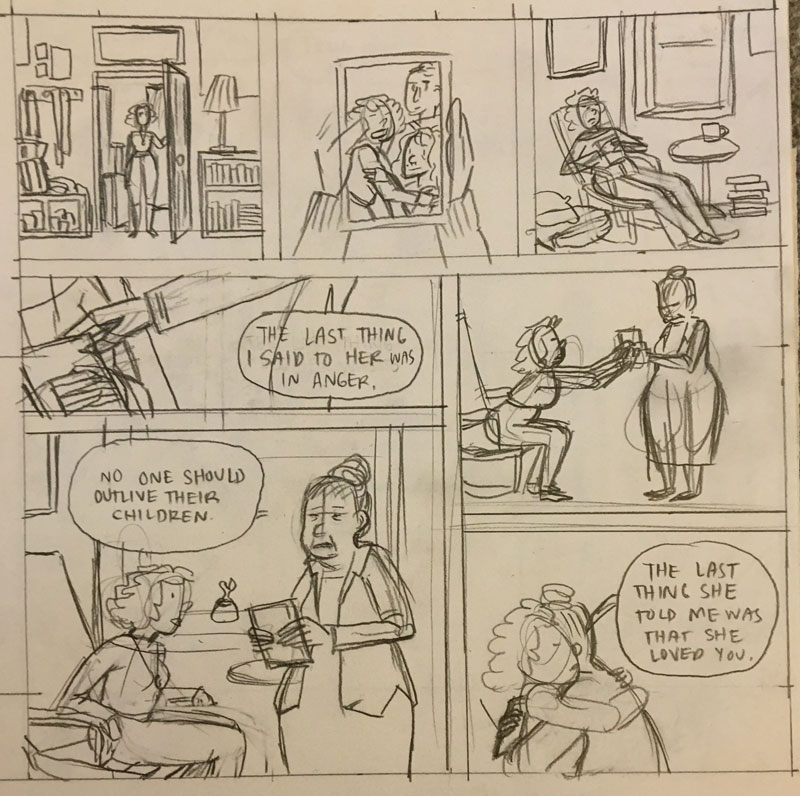 THE LAST THING
I SAID TO HER WAS
IN ANGER.
NO ONE SHOULD
OUTLIVE THEIR
CHILDREN.
THE LAST
THING SHE
TOLD ME WAS
THAT SHE
LOVED YOU.